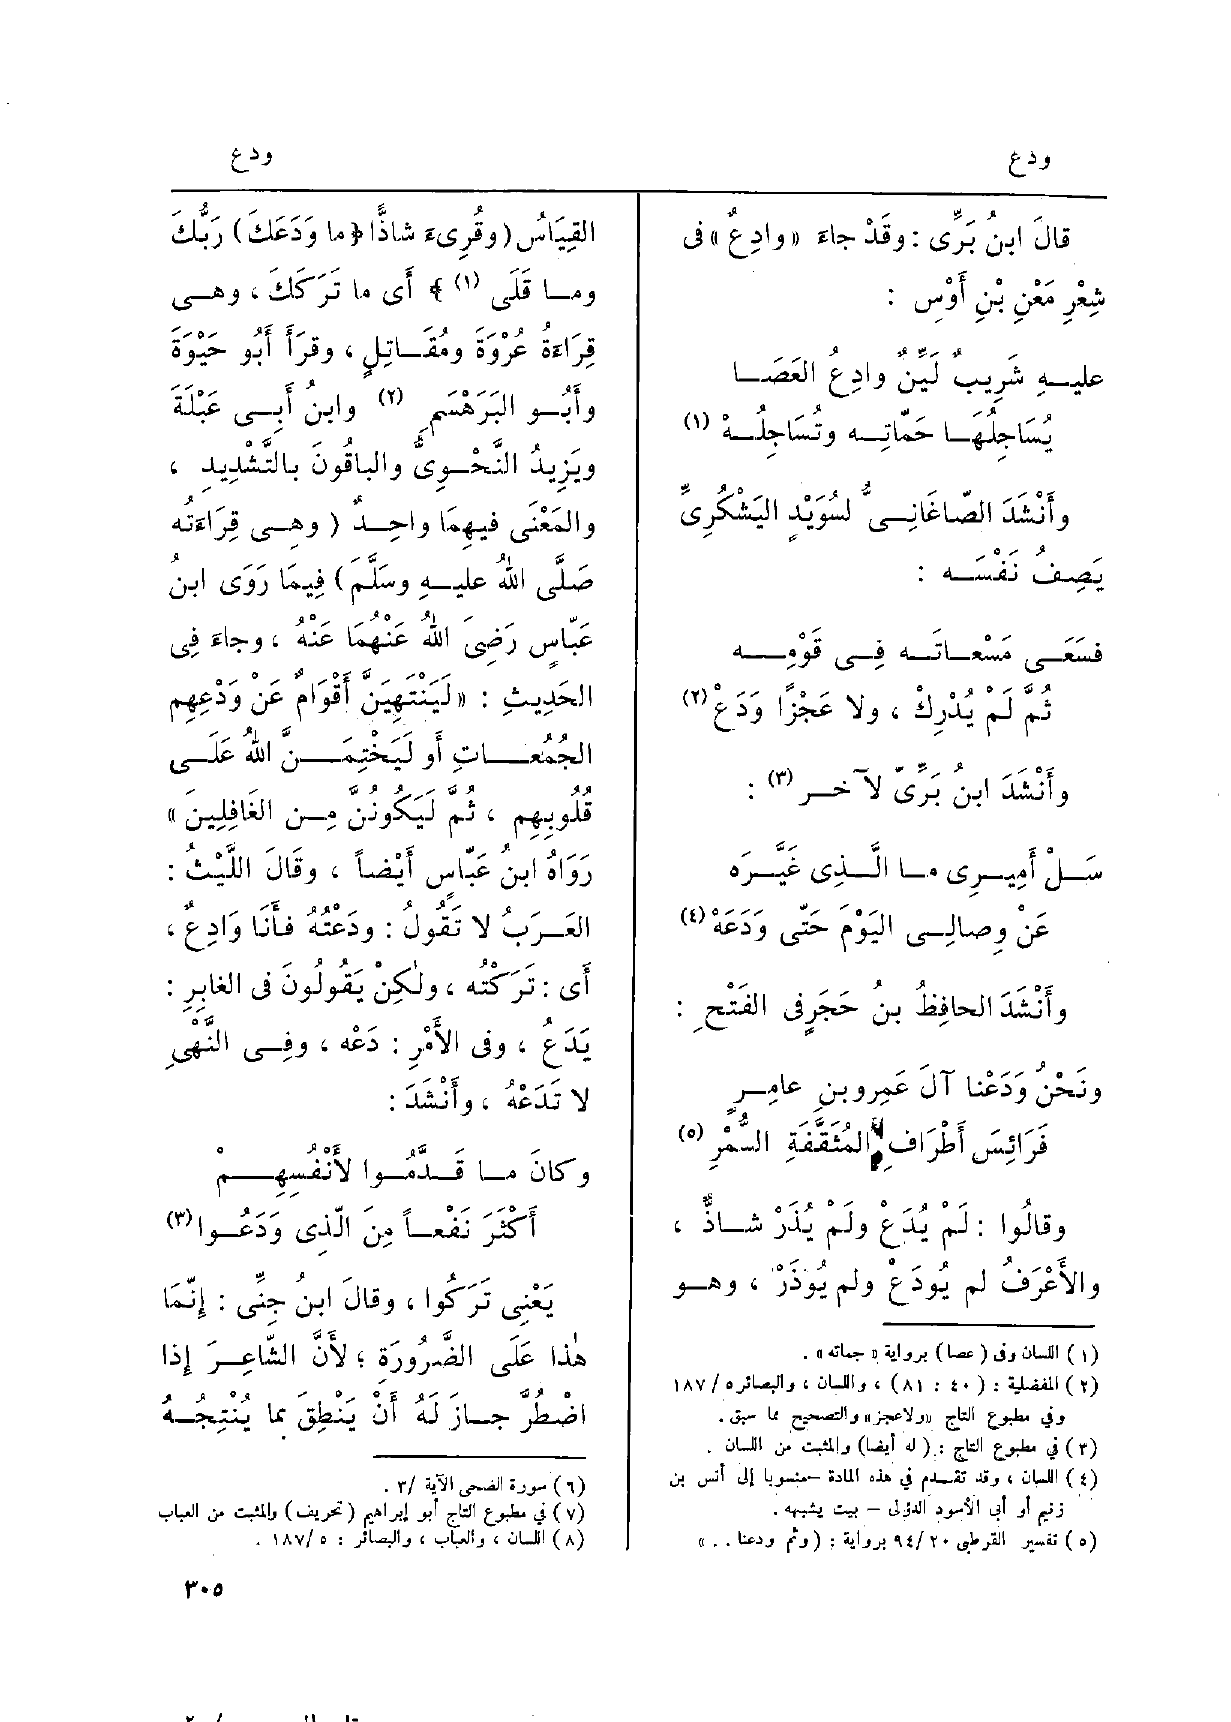 ودع
ودع
قالَ ابنُ بَرِّى : وقَدْ جاءَ «وادِعٌ» فى
شِعْرِ مَعْنِ بْنِ أَوْسٍ :
عليـهِ شَرِيبٌ لَيِّنٌ وادِعُ العَصَـا
يُسَاجِلُهَـا حَمّاتِـه وتُسَاجِلُـهْ (١)
وأَنْشَدَ الصّاغَانِـىُّ لسُوَيْدٍ اليَشْكُرِىِّ
يَصِفُ نَفْسَـه :
فسَعَـى مَسْعـاتَـه فِـى قَوْمِـه
ثُمَّ لَمْ يُدْرِكْ ، ولا عَجْزًا وَدَعْ (٢)
وأَنْشَدَ ابنُ بَرِّىّ لآخـر (٣) :
سَـلْ أَمِيـرِى مـا الَّـذِى غَيَّـرَه
عَنْ وِصالِـى اليَوْمَ حَتّى وَدَعَهْ (٤)
وأَنْشَدَ الحافِظُ بنُ حَجَرٍ فى الفَتْحِ :
ونَحْنُ وَدَعْنا آلَ عَمرِو بنِ عامِـرٍ
فَرائِسَ أَطْرَافِ المُثَقَّفَةِ السُّمْرِ (٥)
وقالُوا : لَمْ يُدَعْ ولَمْ يُذَرْ شـاذٌّ ،
والأَعْرَفُ لم يُودَعْ ولم يُوذَرْ ، وهـو
(١) اللسان وفى (عصا) برواية «جماته» .
(٢) المفضلية : (٤٠ : ٨١) ، واللسان ، والبصائر ٥/ ١٨٧
وفي مطبوع التاج «ولاعجز» والتصحيح مما سبق .
(٣) في مطبوع التاج : (له أيضا) والمثبت من اللسان .
(٤) اللسان ، وقد تقـدم في هذه المادة –منسوبا إلى أنس بن
زنيم أو أبى الأسود الدؤلى – بيت يشبهه .
(٥) تفسير القرطبى ٢٠ /٩٤ برواية : (وثم ودعنا . . »
القِيَاسُ (وقُرِىءَ شاذًّا ﴿ما وَدَعَكَ) رَبُّكَ
ومـا قَلَى (١) ﴾ أَى ما تَرَكَكَ ، وهـى
قِرَاءَةُ عُرْوَةَ ومُقَـاتِلٍ ، وقرَأَ أَبُو حَيْوَةَ
وأَبُـو البَرَهْسَمِ (٢) وابنُ أَبِـى عَبْلَةَ
ويَزِيدُ النَّحْـوِىُّ والباقُونَ بالتَّشْدِيدِ ،
والمَعْنَى فيهِمَا واحِـدٌ ( وهـى قِرَاءَتُه
صَلَّى اللهُ عليـهِ وسَلَّمَ) فِيمَا رَوَى ابنُ
عَبّاسٍ رَضِىَ اللهُ عَنْهُمَا عَنْهُ ، وجاءَ فِى
الحَدِيثِ : «لَيَنْتَهِيَنَّ أَقْوَامٌ عَنْ وَدْعِهِم
الجُمُعـاتِ أَو لَيَخْتِمَـنَّ اللهُ عَلَـى
قُلُوبِهِم ، ثُمَّ لَيَكُونُنَّ مِـن الغَافِلِينَ»
رَوَاهُ ابنُ عَبّاسٍ أَيْضاً ، وقَالَ اللَّيْثُ :
العَـرَبُ لا تَقُولُ : ودَعْتُهُ فـأَنا وَادِعٌ ،
أَى : تَرَكْتُه ، ولٰكِنْ يَقُولُونَ فى الغابِرِ :
يَدَعُ ، وفى الأَمْرِ : دَعْه ، وفِـى النَّهْىِ
لا تَدَعْهُ ، وأَنْشَدَ :
وكانَ مـا قَـدَّمُـوا لأَنْفُسِهِـمْ
أَكْثَرَ نَفْعـاً مِنَ الّذِى وَدَعُـوا (٣)
يَعْنِى تَرَكُوا ، وقالَ ابنُ جِنِّى : إِنّمَا
هٰذا عَلَى الضَّرُورَةِ ؛ لأَنَّ الشّاعِـرَ إِذا
اضْطُرَّ جـازَ لَهُ أَنْ يَنْطِقَ بما يُنْتِجُـهُ
(٦) سورة الضحى الآية /٣ .
(٧) في مطبوع التاج أبو إبراهيم (تحريف) والمثبت من العباب
(٨) اللسان ، والعباب ، والبصائر : ٥ /١٨٧ .
٣٠٥